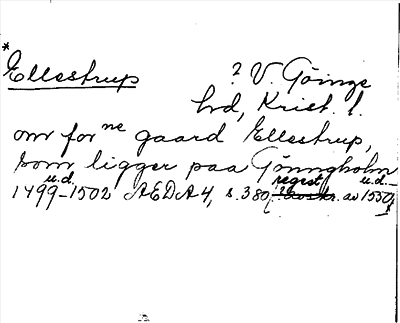 *Ellestrup ? V. Göinge
hd, Krist. l.
om for ne gaard Ellestrup,
som ligger paa Gönngholm
u.d. regest u.d.
1499-1502 AEDA 4, s. 380, avskr. av 1550